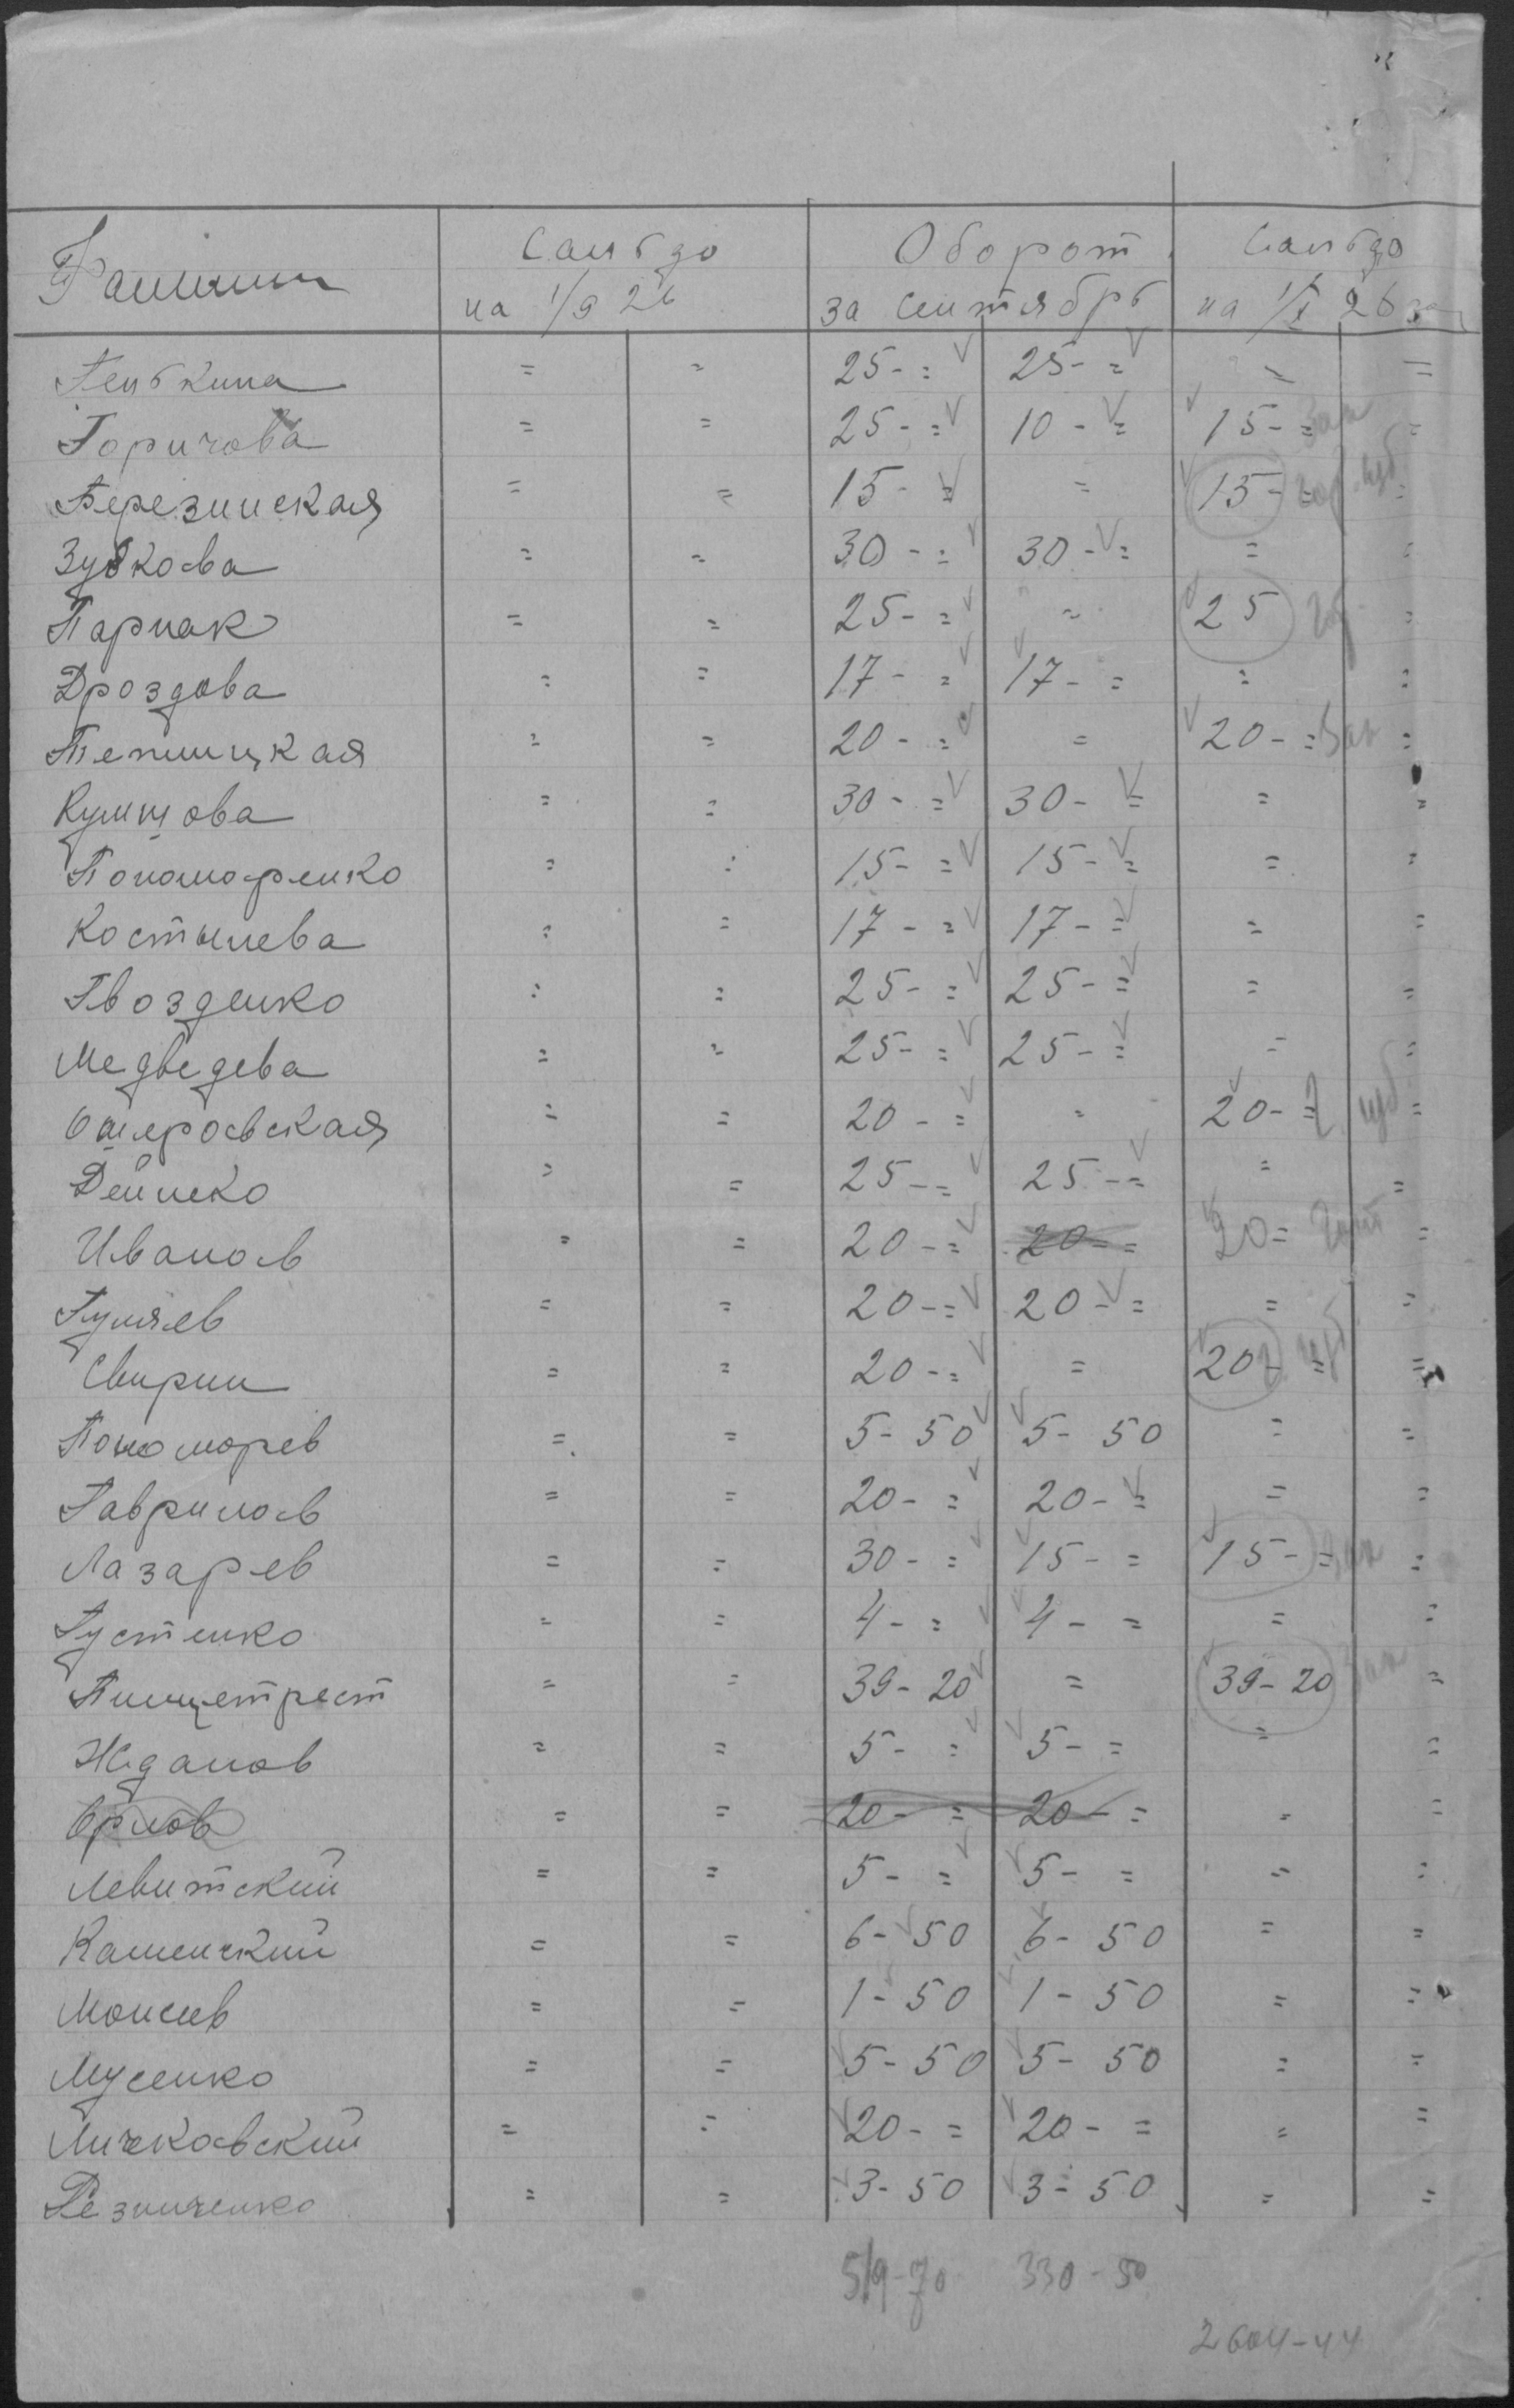 Фамилии Сальдо Оборот Сальдо
на 1/9 26 за сентябрь на 1/X 26
Гелькина = = 25- = 25- = = =
Горичова = = 25- = 10- = 15- = Зак =
Березинская = = 15- = = 15- = =
Зубкова = = 30- = 30- = = =
Парнак = = 25- = = 25 =
Дроздова = = 17- = 17- = = =
Теплицкая = = 20- = = 20- = Зак =
Кумщова = = 30- = 30- = = =
Пономаренко = = 15- = 15- = = =
Костылева = = 17- = 17- = = =
Гвозденко = = 25- = 25- = = =
Медведева = = 25- = 25- = = =
Ошеровская = = 20- = = 20- = =
Дейнеко = = 25- = 25- = = =
Иванов = = 20- = 20- = 20 = =
Гуляев = = 20- = 20- = = =
Свирин = = 20- = = 20- = =
Пономорев = = 5-50 5-50 = =
Гаврилов = = 20- = 20- = = =
Лазарев = = 30- = 15- = 15- = Зак =
Густенко = = 4- = 4- = = =
Пищетрест = = 39-20 = 39-20 Зак =
Жданов = = 5- = 5- = = =
Орлов = = 20- = 20- = = =
Левитский = = 5- = 5- = = =
Каменский = = 6-50 6-50 = =
Моисеев = = 1-50 1-50 = =
Мусенко = = 5-50 5-50 = =
Личковский = = 20- = 20- = = =
Резниченко = = 3-50 3-50 = =
519-70 330-50
2604-44